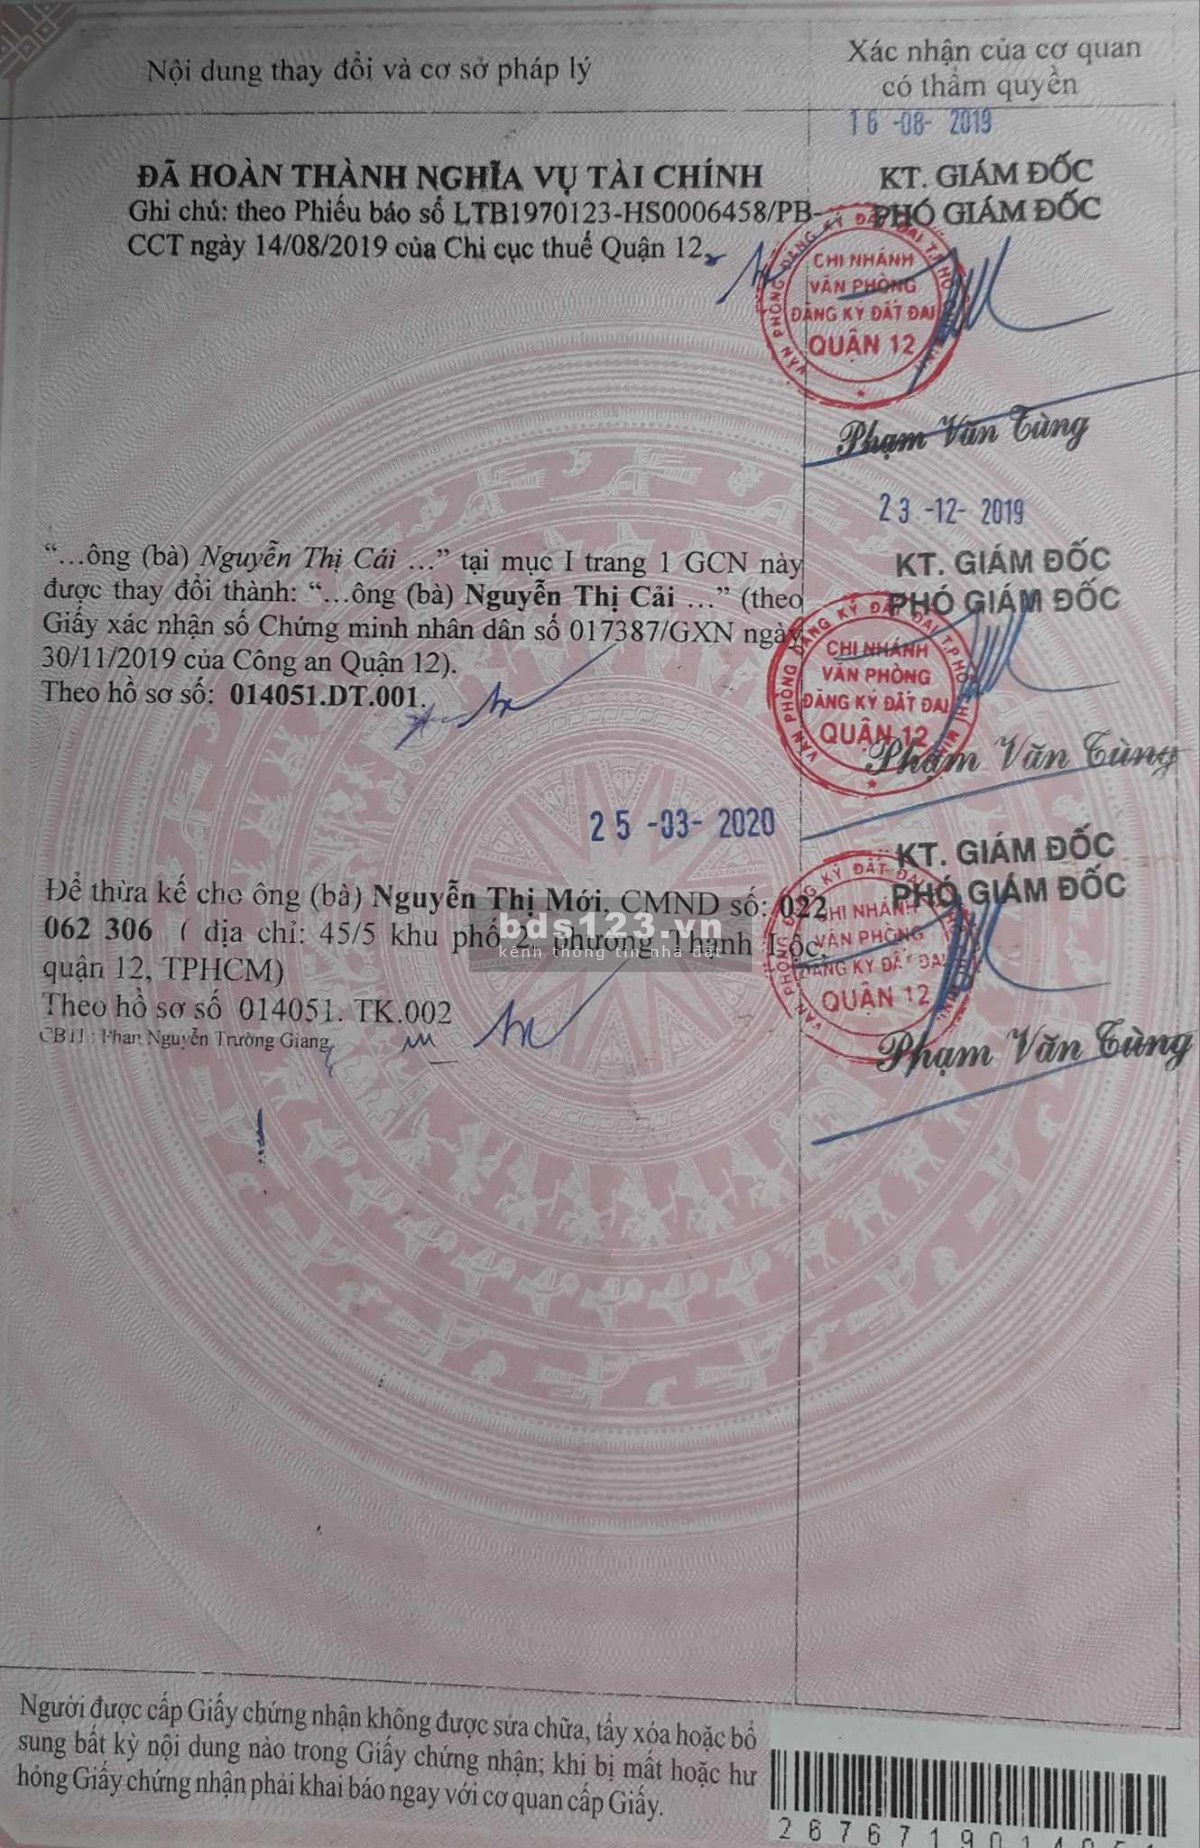 Nội dung thay đổi và cơ sở pháp lý
Xác nhận của cơ quan
có thẩm quyền
16 -08- 2019
ĐÃ HOÀN THÀNH NGHĨA VỤ TÀI CHÍNH
Ghi chú: theo Phiếu báo số LTB1970123-HS0006458/PB-
CCT ngày 14/08/2019 của Chi cục thuế Quận 12
KT. GIÁM ĐỐC
PHÓ GIÁM ĐỐC
VĂN PHÒNG ĐĂNG KÝ ĐẤT ĐAI T.P HỒ CHÍ MINH
CHI NHÁNH
VĂN PHÒNG
ĐĂNG KÝ ĐẤT ĐAI
QUẬN 12
Phạm Văn Tùng
23 -12- 2019
“...ông (bà) Nguyễn Thị Cái ...” tại mục I trang 1 GCN này
được thay đổi thành: “...ông (bà) Nguyễn Thị Cải ...” (theo
Giấy xác nhận số Chứng minh nhân dân số 017387/GXN ngày
30/11/2019 của Công an Quận 12).
Theo hồ sơ số: 014051.DT.001.
KT. GIÁM ĐỐC
PHÓ GIÁM ĐỐC
VĂN PHÒNG ĐĂNG KÝ ĐẤT ĐAI T.P HỒ CHÍ MINH
CHI NHÁNH
VĂN PHÒNG
ĐĂNG KÝ ĐẤT ĐAI
QUẬN 12
Phạm Văn Tùng
25 -03- 2020
Để thừa kế cho ông (bà) Nguyễn Thị Mới, CMND số: 022
062 306 ( địa chỉ: 45/5 khu phố 2, phường Thạnh Lộc,
quận 12, TPHCM)
Theo hồ sơ số 014051. TK.002
CBTH : Phan Nguyễn Trường Giang
KT. GIÁM ĐỐC
PHÓ GIÁM ĐỐC
CHI NHÁNH
VĂN PHÒNG
ĐĂNG KÝ ĐẤT ĐAI
QUẬN 12
Phạm Văn Tùng
bds123.vn
kênh thông tin nhà đất
Người được cấp Giấy chứng nhận không được sửa chữa, tẩy xóa hoặc bổ
sung bất kỳ nội dung nào trong Giấy chứng nhận; khi bị mất hoặc hư
hỏng Giấy chứng nhận phải khai báo ngay với cơ quan cấp Giấy.
26767190140